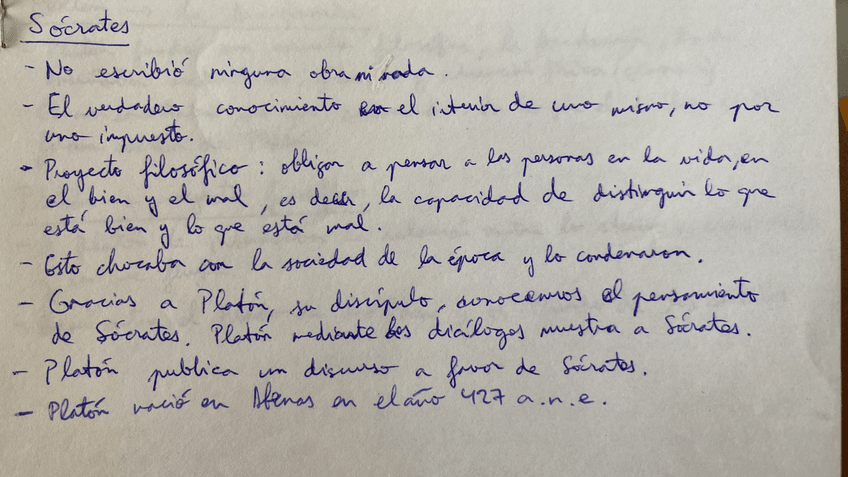 Sócrates
- No escribió ninguna obra ni nada.
- El verdadero conocimiento en el interior de uno mismo, no por
uno impuesto.
- Proyecto filosófico: obligar a pensar a las personas en la vida, en
el bien y el mal, es decir, la capacidad de distinguir lo que
está bien y lo que está mal.
- Esto chocaba con la sociedad de la época y lo condenaron.
- Gracias a Platón, su discípulo, conocemos el pensamiento
de Sócrates. Platón mediante los diálogos muestra a Sócrates.
- Platón publica un discurso a favor de Sócrates.
- Platón nació en Atenas en el año 427 a.n.e.